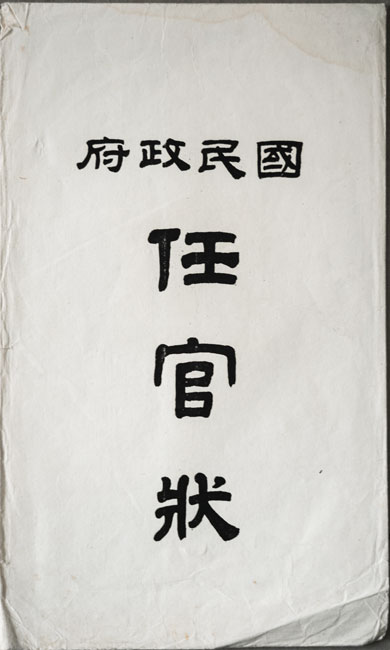 國民政府
任官狀